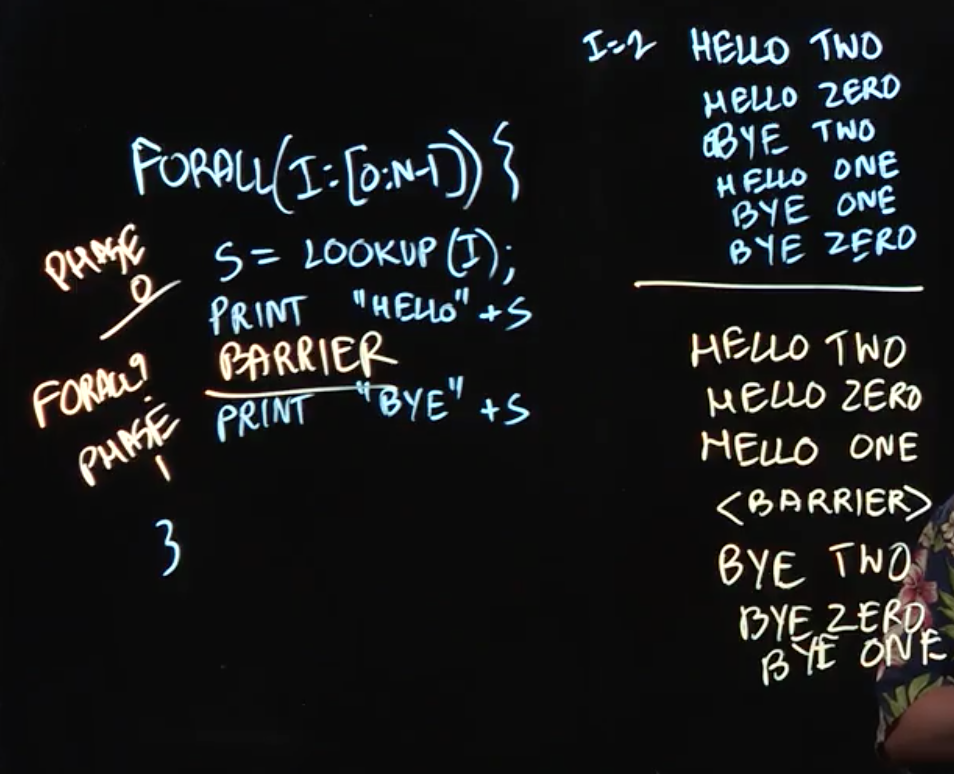 FORALL(I:[0:N-1]) {
PHASE
0
S = LOOKUP(I);
PRINT "HELLO" + S
BARRIER
FORALL?
PHASE
1
PRINT "BYE" + S
}
I=2 HELLO TWO
HELLO ZERO
BYE TWO
HELLO ONE
BYE ONE
BYE ZERO
HELLO TWO
HELLO ZERO
HELLO ONE
<BARRIER>
BYE TWO
BYE ZERO
BYE ONE